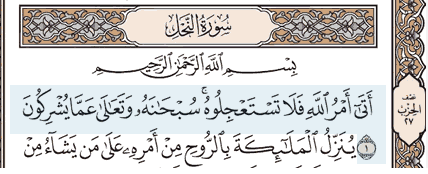 سُورَةُ النَّحْلِ
بِسْمِ ٱللَّهِ ٱلرَّحْمَٰنِ ٱلرَّحِيمِ
أَتَىٰٓ أَمْرُ ٱللَّهِ فَلَا تَسْتَعْجِلُوهُ ۚ سُبْحَٰنَهُۥ وَتَعَٰلَىٰ عَمَّا يُشْرِكُونَ
١ يُنَزِّلُ ٱلْمَلَٰٓئِكَةَ بِٱلرُّوحِ مِنْ أَمْرِهِۦ عَلَىٰ مَن يَشَآءُ مِنْ
نصف
الحزب
٢٧